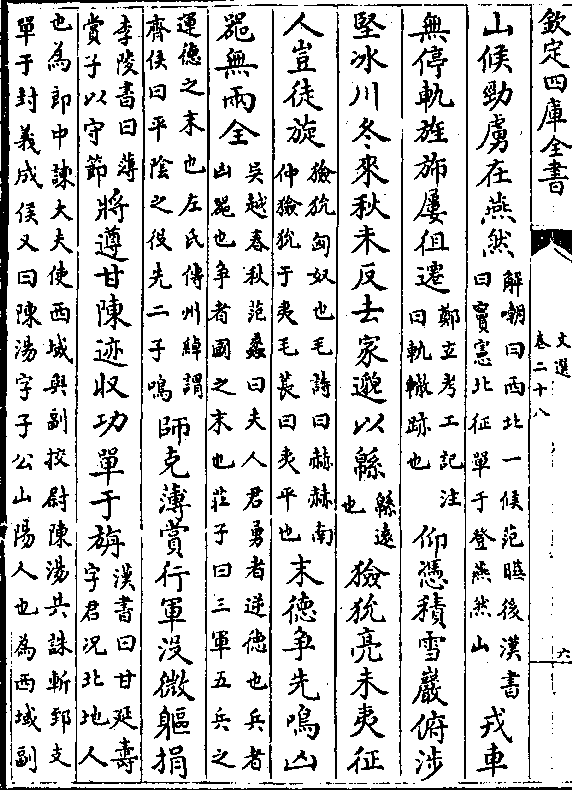 欽定四庫全書
文選
卷二十八
六
山候勁虜在燕然解嘲曰西北一候范曄後漢書曰竇憲北征單于登燕然山戎車
無停軌旌斾屢徂遷鄭玄考工記注曰軌轍跡也仰憑積雪巖俯涉
堅冰川冬來秋未反去家邈以緜緜遠也獫狁亮未夷征
人豈徒旋獫狁匈奴也毛詩曰赫赫南仲獫狁于夷毛萇曰夷平也末德争先鳴凶
器無兩全吳越春秋范蠡曰夫人君勇者逆德也兵者凶器也争者國之末也莊子曰三軍五兵之
運德之末也左氏傳州綽謂齊侯曰平陰之役先二子鳴師克薄賞行軍没微軀捐
李陵書曰薄賞子以守節將遵甘陳迹收功單于旃漢書曰甘延壽字君况北地人
也為郎中諫大夫使西域與副校尉陳湯共誅斬郅支單于封義成侯又曰陳湯字子公山陽人也為西域副